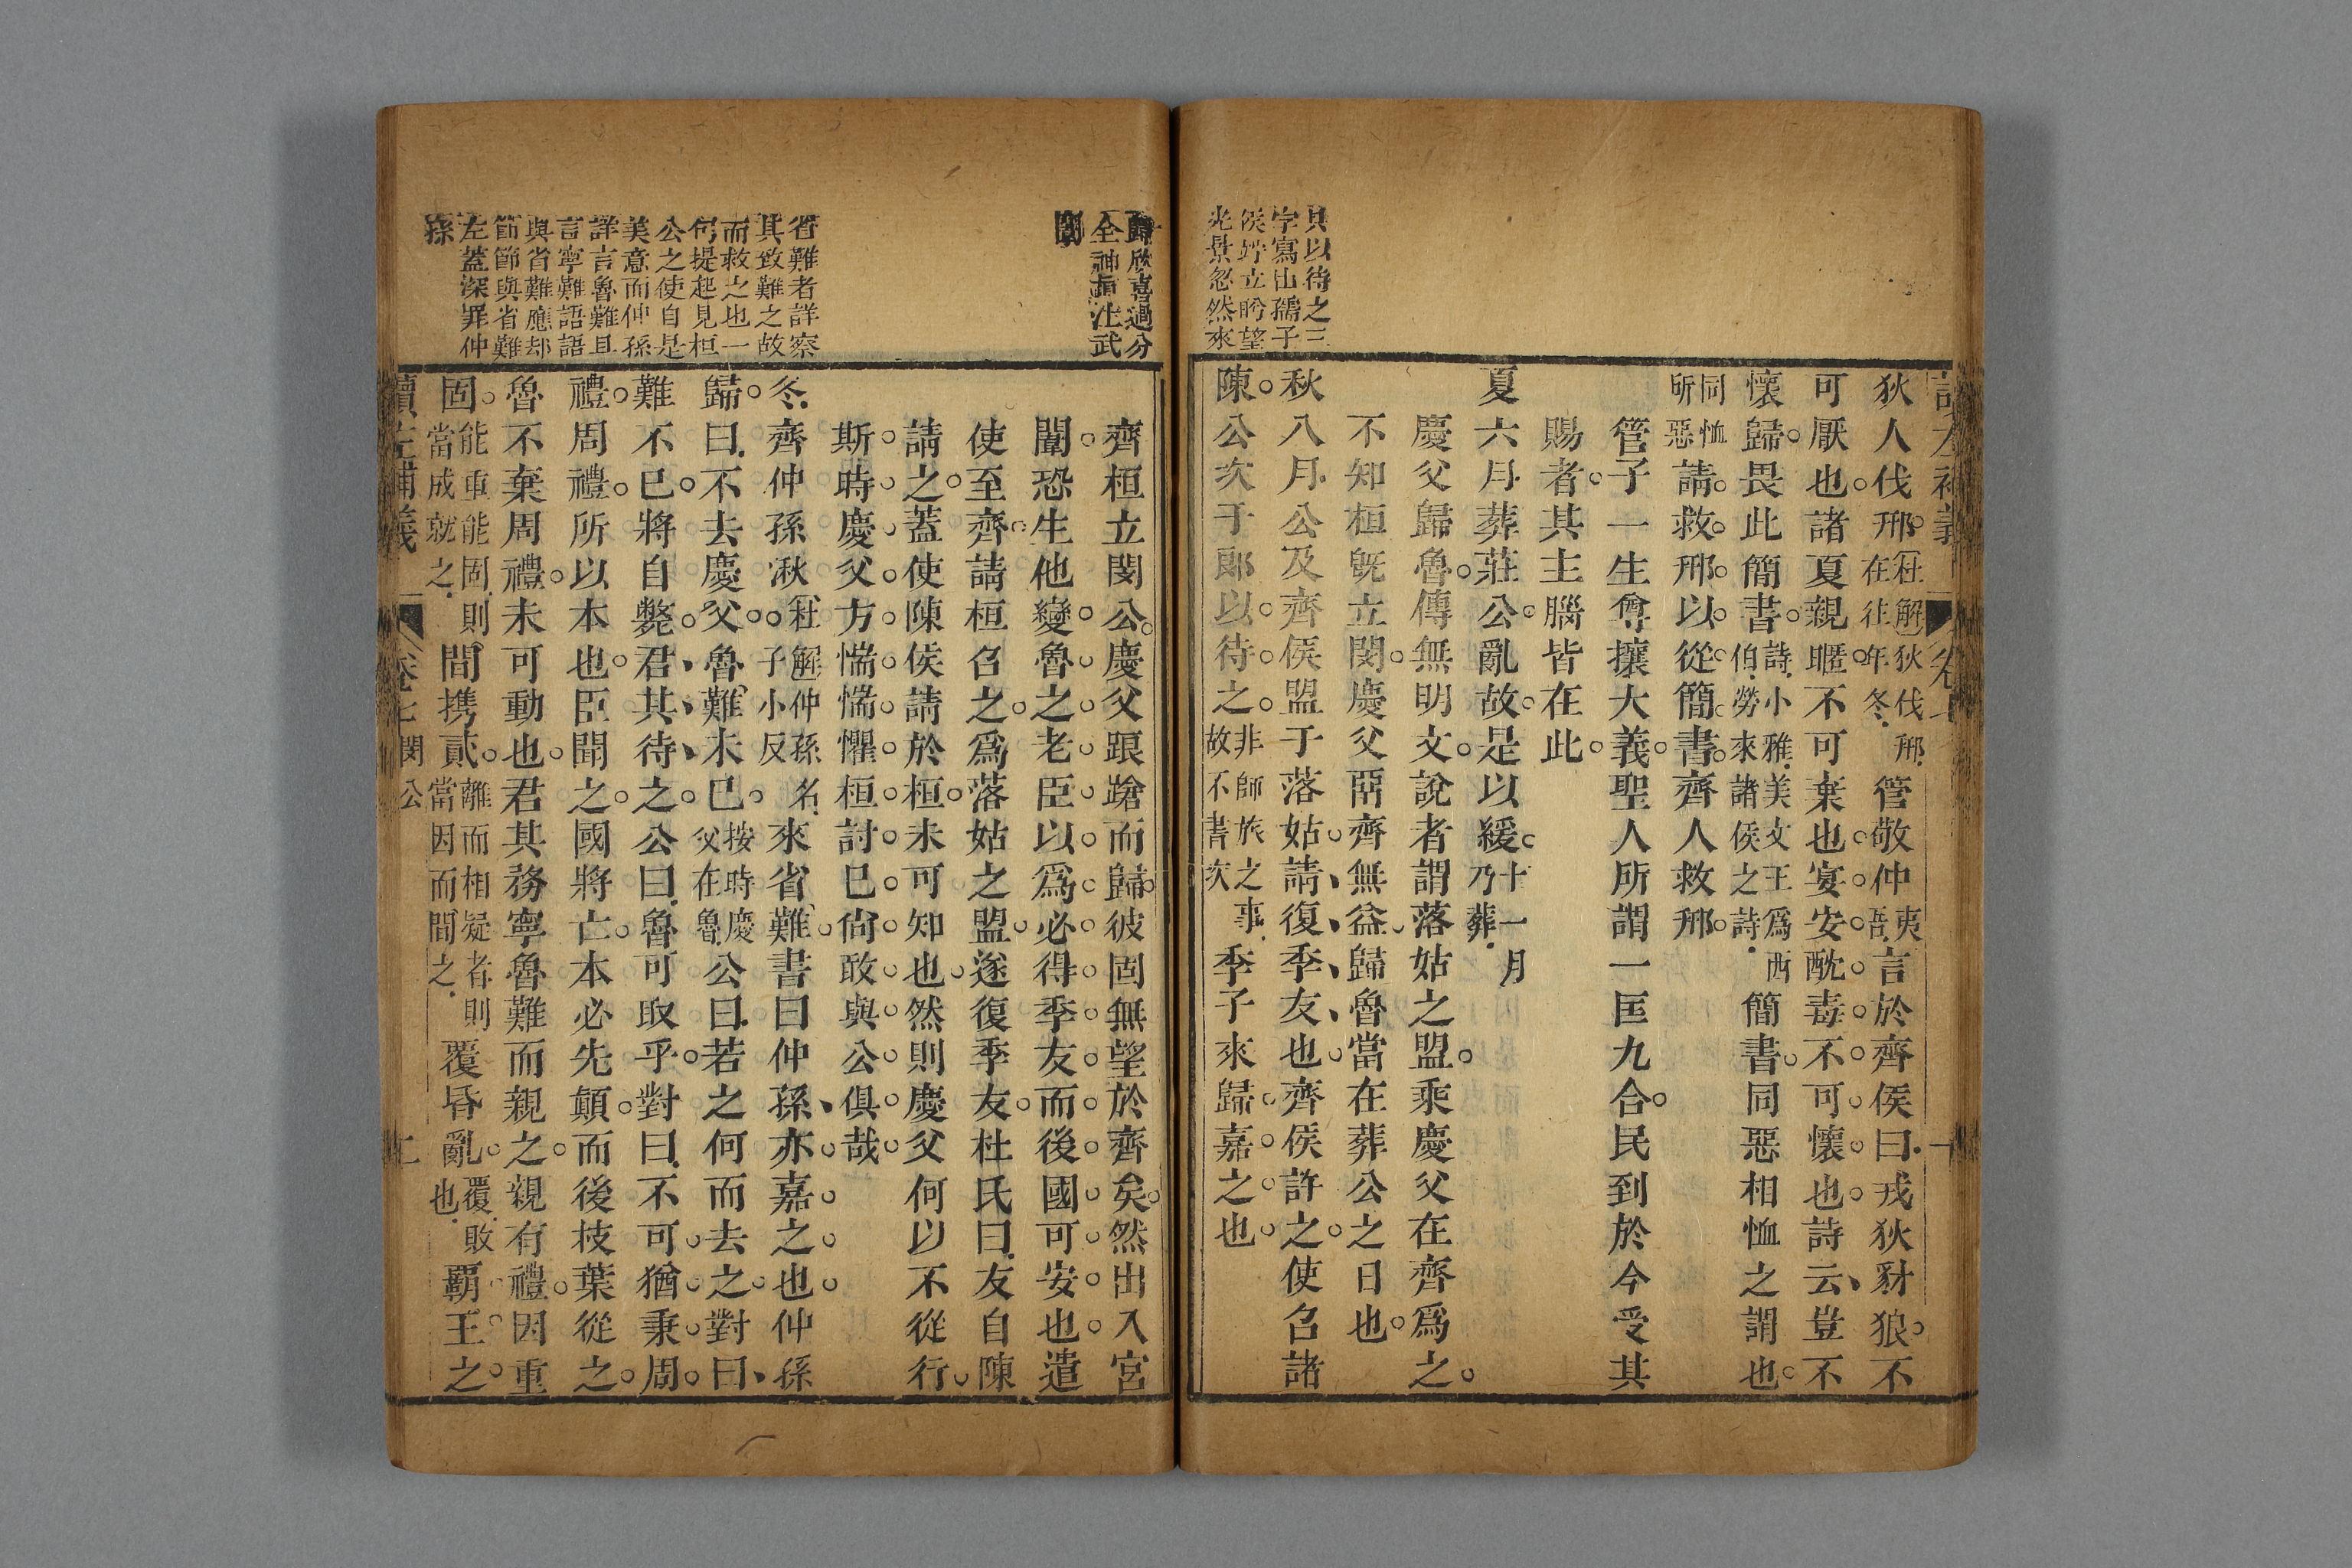 狄人伐邢杜解狄伐邢在往年冬管敬仲夷吾言於齊侯曰戎狄豺狼不
可厭也諸夏親暱不可棄也宴安酖毒不可懷也詩云豈不
懷歸畏此簡書詩小雅美文王爲西伯勞來諸侯之詩簡書同惡相恤之謂也
同恤所惡請救邢以從簡書齊人救邢
管子一生尊攘大義聖人所謂一匡九合民到於今受其
賜者其主腦皆在此
夏六月葬莊公亂故是以緩十一月乃葬
慶父歸魯傳無明文說者謂落姑之盟乘慶父在齊爲之
不知桓旣立閔慶父居齊無益歸魯當在葬公之日也
秋八月公及齊侯盟于落姑請復季友也齊侯許之使召諸
陳公次于郎以待之非師旅之事故不書次季子來歸嘉之也
其以待之三
字寫出孺子
侯竚立盻望
光景忽然來
歸欣喜過分
全神直注武
闈
齊桓立閔公慶父踉蹌而歸彼固無望於齊矣然出入宮
闈恐生他變魯之老臣以爲必得季友而後國可安也遣
使至齊請桓召之爲落姑之盟遂復季友杜氏曰友自陳
請之蓋使陳侯請於桓未可知也然則慶父何以不從行
斯時慶父方惴惴懼桓討已尙敢與公俱哉
冬齊仲孫湫杜解仲孫名子小反來省難書曰仲孫亦嘉之也仲孫
歸曰不去慶父魯難未已按時慶父在魯公曰若之何而去之對曰
難不已將自斃君其待之公曰魯可取乎對曰不可猶秉周
禮周禮所以本也臣聞之國將亡本必先顛而後枝葉從之
魯不棄周禮未可動也君其務寧魯難而親之親有禮因重
固能重能固則當成就之間攜貳離而相疑者則當因而間之覆昏亂覆敗也霸王之
省難者詳察
其致難之故
而救之也一
句提起見桓
公之使自是
美意而仲孫
詳言魯難且
言寧難語語
與省難應却
節節與省難
左蓋深罪仲
孫
讀左補義 卷七 閔公 二